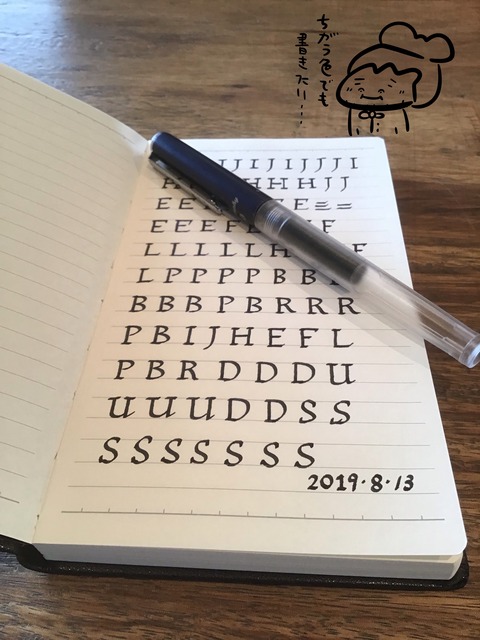 ちがう色でも
書きたい…
IJIJIJJJI
HHHJJ
EE
EEEF F
LLLLLH F
LPPPPBB
BBBPBRRR
PBIJHEFL
PBRDDDU
UUUDDSS
SSSSSSS
2019・8・13